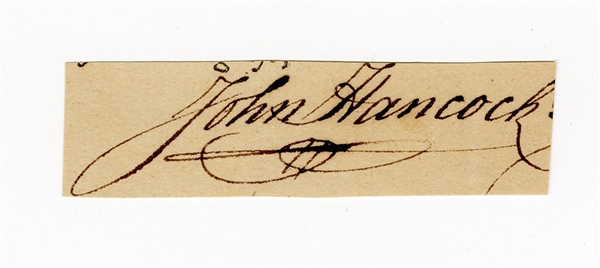 John Hancock